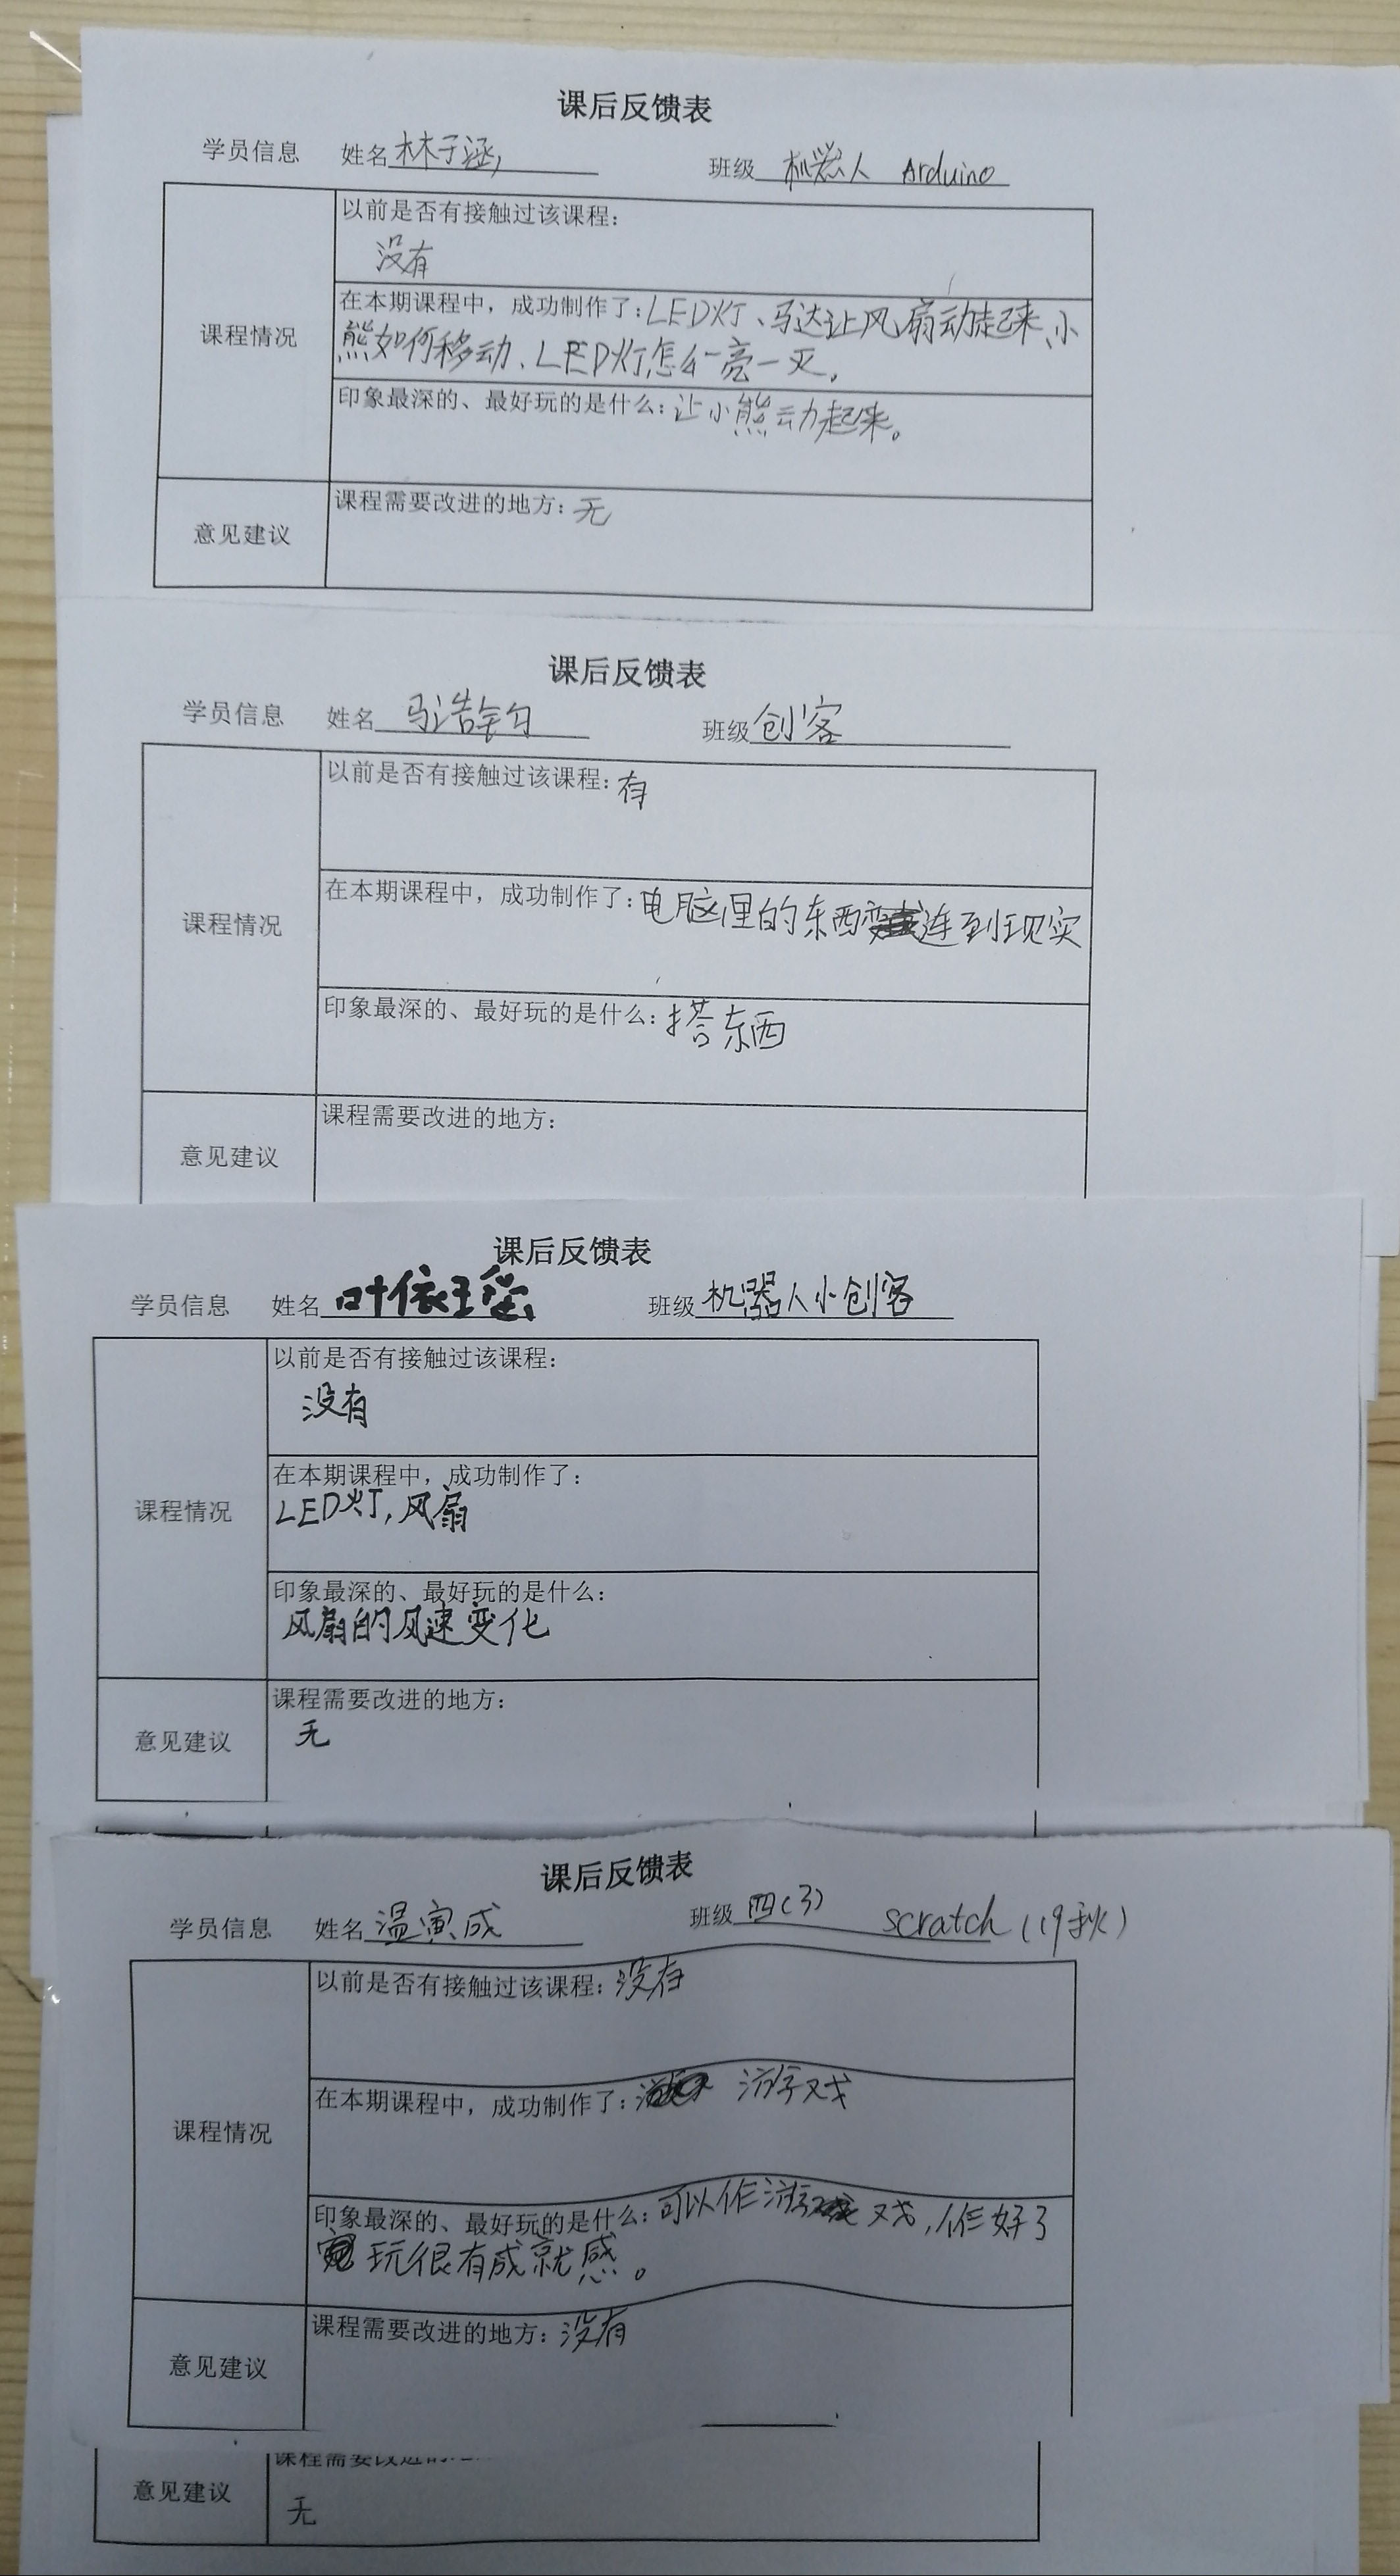 课后反馈表
学员信息 姓名 林子涵 班级 机器人 Arduino
以前是否有接触过该课程：
没有
课程情况
在本期课程中，成功制作了：LED灯、马达让风扇动起来、小
熊如何移动、LED灯怎么一亮一灭。
印象最深的、最好玩的是什么：让小熊动起来。
意见建议
课程需要改进的地方：无
课后反馈表
学员信息 姓名 马浩钧 班级 创客
以前是否有接触过该课程：有
课程情况
在本期课程中，成功制作了：电脑里的东西连到现实
印象最深的、最好玩的是什么：搭东西
意见建议
课程需要改进的地方：
课后反馈表
学员信息 姓名 叶依瑶 班级 机器人小创客
以前是否有接触过该课程：
没有
课程情况
在本期课程中，成功制作了：
LED灯，风扇
印象最深的、最好玩的是什么：
风扇的风速变化
意见建议
课程需要改进的地方：
无
课后反馈表
学员信息 姓名 温寅成 班级 四(3) scratch (19秋)
以前是否有接触过该课程：没有
课程情况
在本期课程中，成功制作了：游戏
印象最深的、最好玩的是什么：可以作游戏，作好了
玩很有成就感。
意见建议
课程需要改进的地方：没有
课程需要改进的
意见建议
无